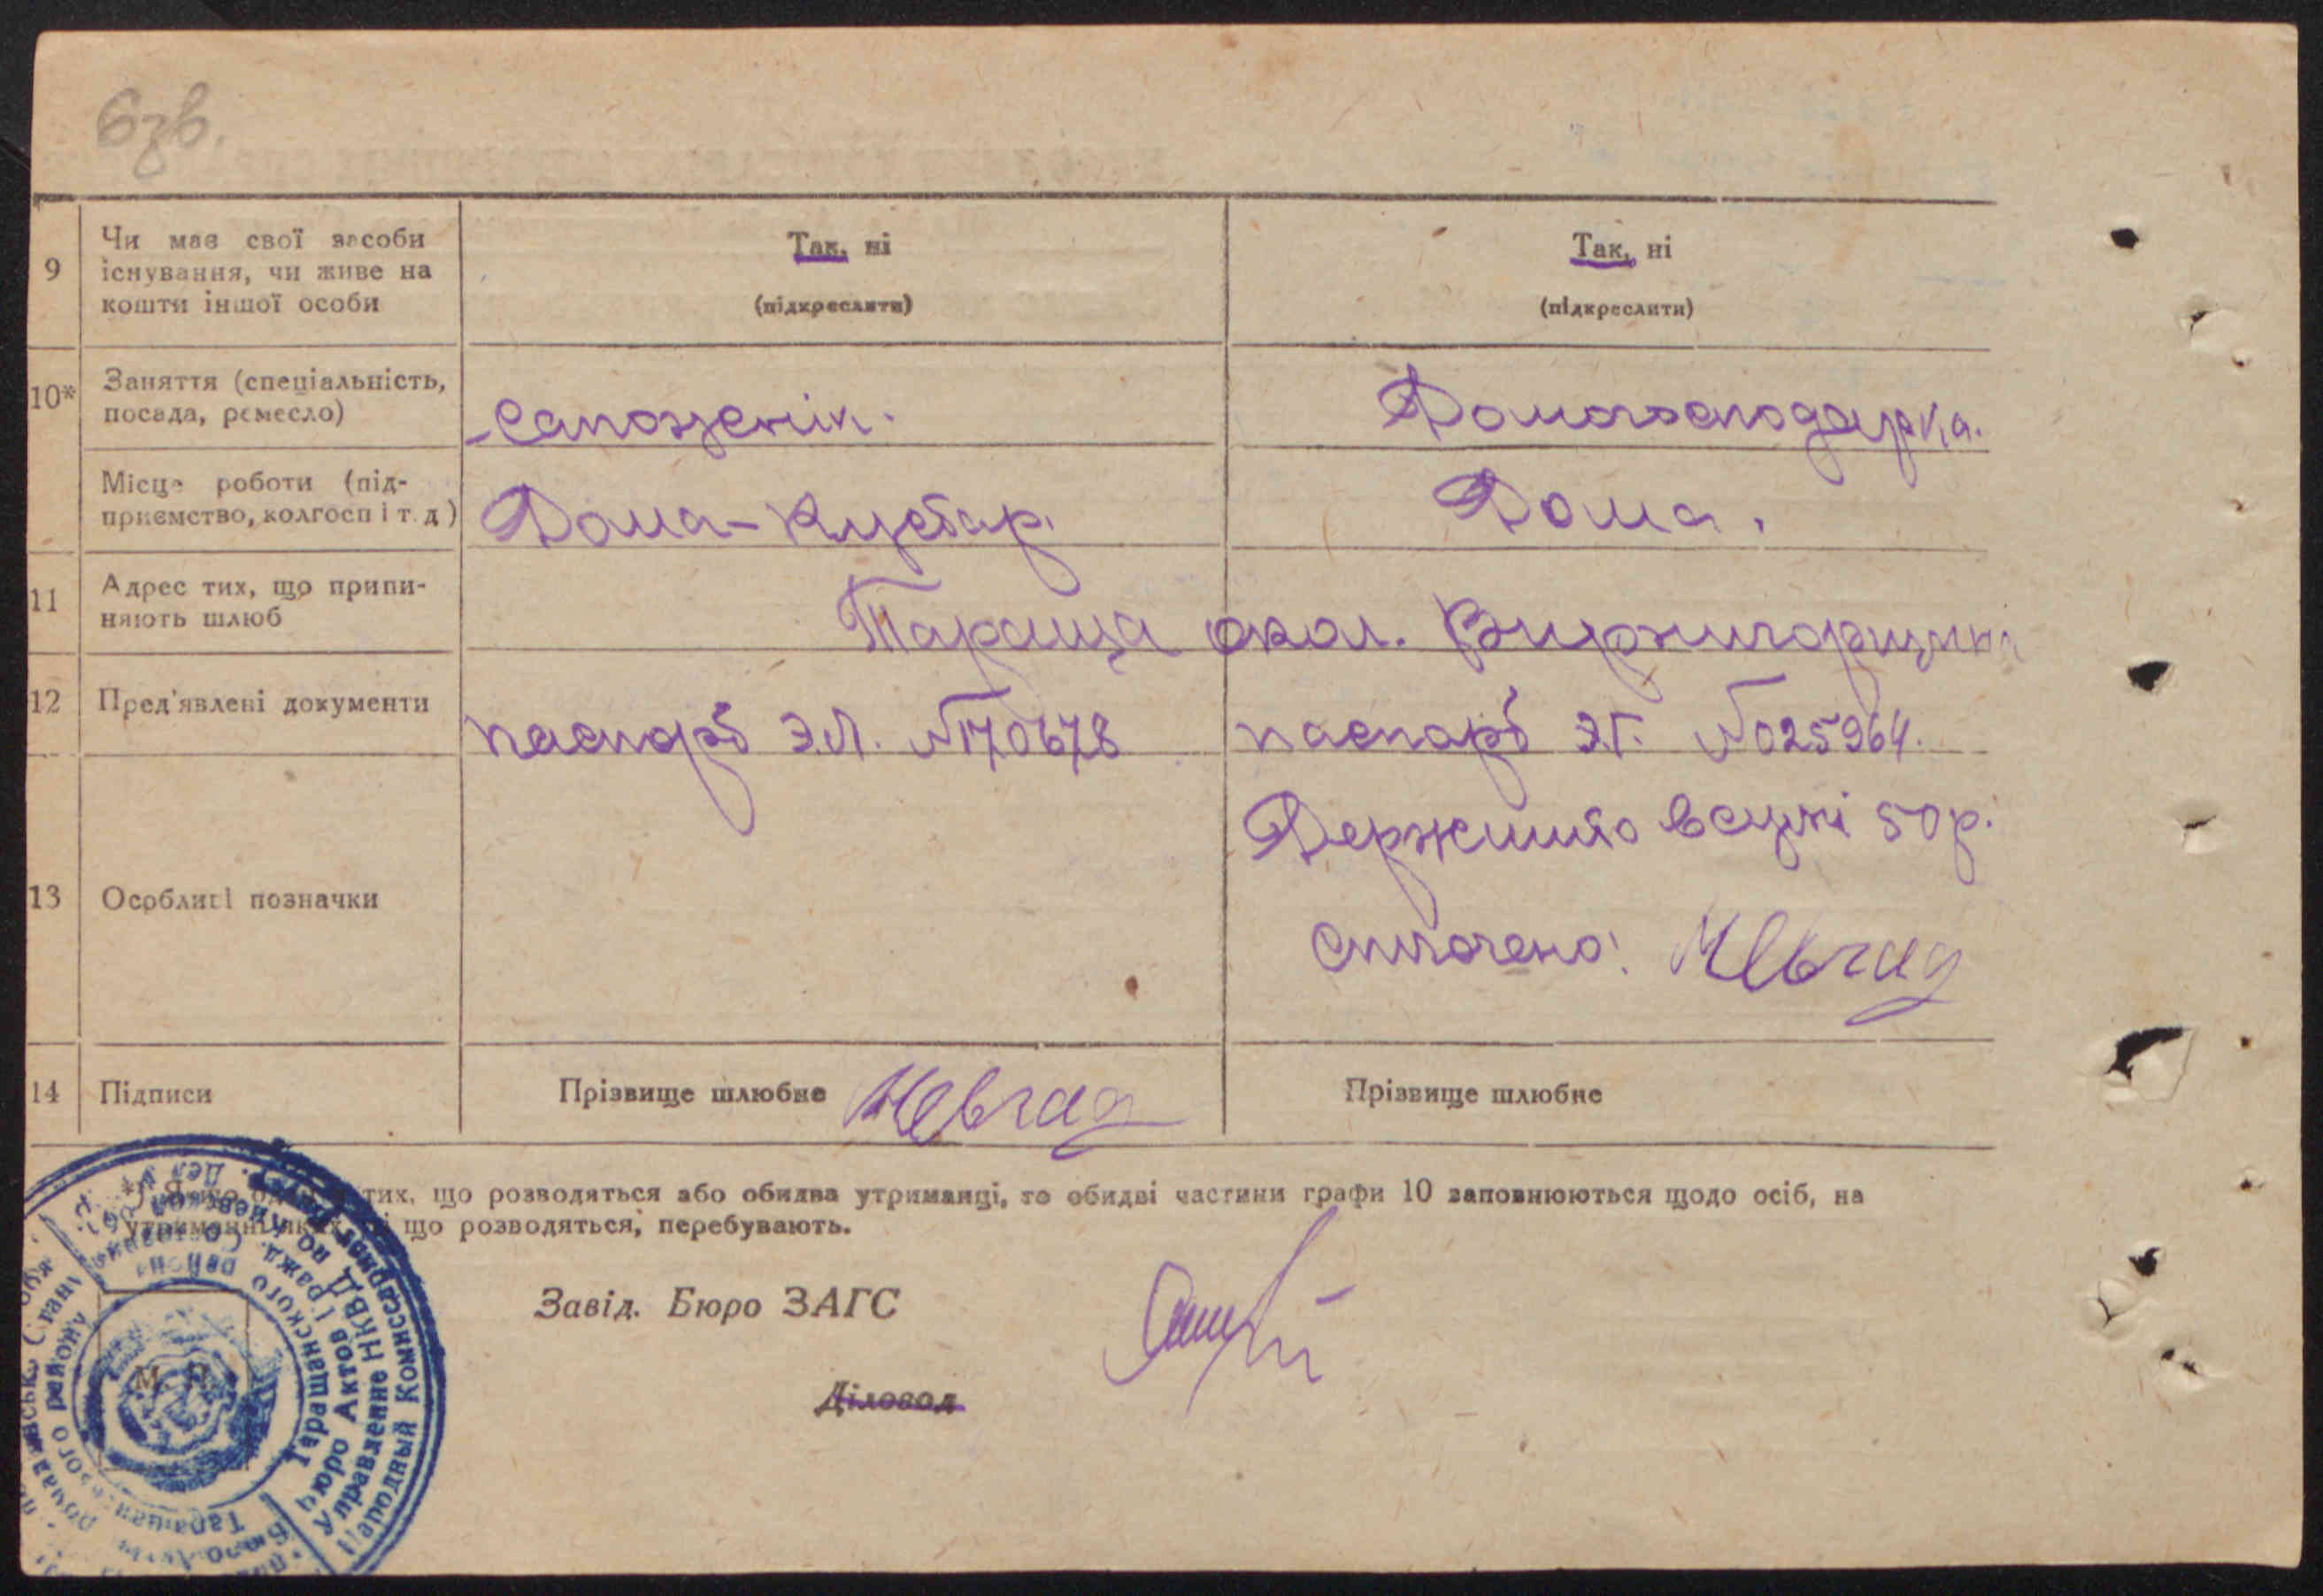 6зв.
9
Чи має свої засоби
існування, чи живе на
кошти іншої особи
Так, ні
(підкреслити)
Так, ні
(підкреслити)
10*
Заняття (спеціальність,
посада, ремесло)
Сапожнік.
Домогосподарка.
Місце роботи (під-
приємство, колгосп і т. д)
Дома-Кустар.
Дома.
11
Адрес тих, що припи-
няють шлюб
Тараща окол.
12
Пред'явлені документи
паспорт ЭЛ. №170678
паспорт ЭГ. №025964.
13
Особливі позначки
Держмито в сумі 50 р.
сплочено!
14
Підписи
Прізвище шлюбне
Прізвище шлюбне
тих, що розводяться або обидва утриманці, то обидві частини графи 10 заповнюються щодо осіб, на
що розводяться, перебувають.
Завід. Бюро ЗАГС
Діловод
М. П.
Народный Комиссариат
Управление НКВД по Киевской
Бюро Актов Гражд. Состояния
Таращанского района